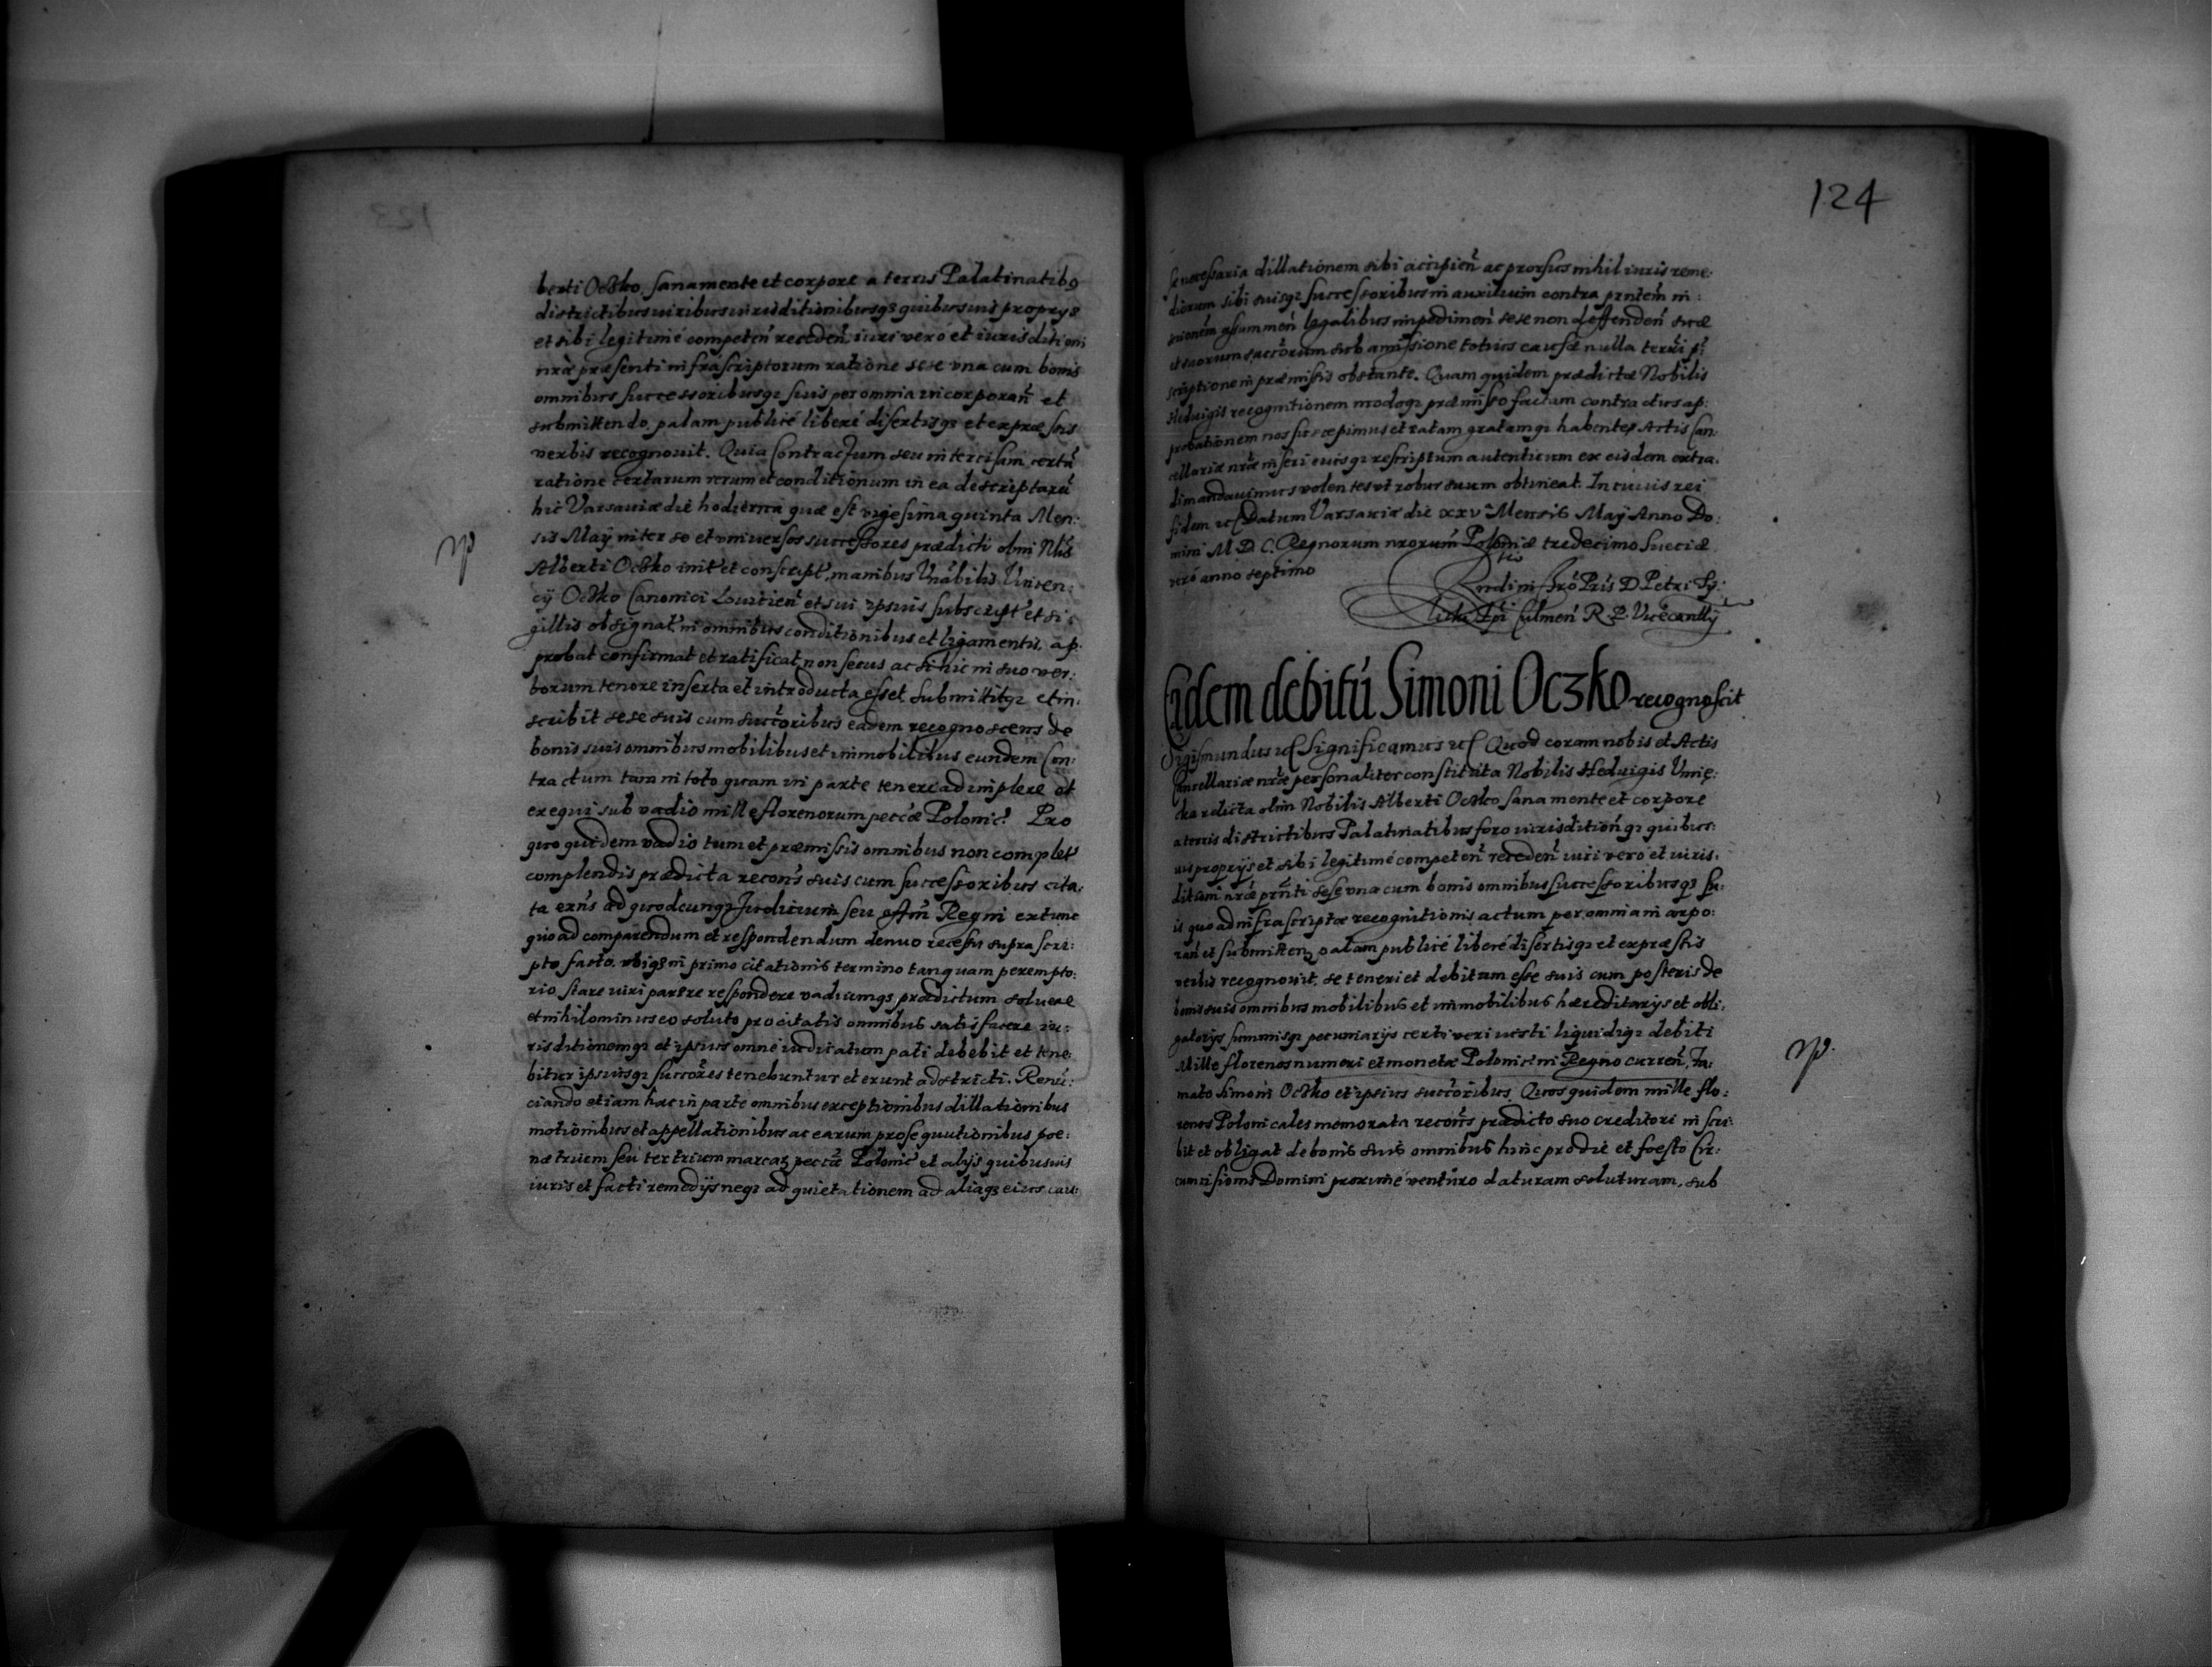 berti Oczko, sana mente et corpore a terris Palatinatib9
districtibus iuribus iurisditionibusq3 quibusuis proprys
et sibi legitimé competeñ receden̄, iuri vero et iurisditioni
nrae praesenti infrascriptorum ratione sese una cum bonis
omnibus successoribusq3 suis per omnia incorporan̄ et
submittendo, palam publicé liberé disertisq3 et expraessis
verbis recognouit. Quia Contractum seu intercisam certū
ratione certarum rerum et conditionum in ea descriptarū
hic Varsauiae die hodierna quae est vigesima quinta Men:
sis May inter se et vniuersos successores praedicti olim Nlis
Alberti Oczko init' et conscript', manibus Vnābilis Vincen:
cy Oczko Canonici Louicien̄ et sui ipsius subscript' et si:
gillis obsignat' in omnibus conditionibus et ligamentis, ap:
probat confirmat et ratificat, non secus ac si hic in suo ver:
borum tenore inserta et introducta esset, submittitq3 et in:
scribit sese suis cum succōribus eadem recognoscens de
bonis suis omnibus mobilibus et immobilibus eundem Con:
tractum tam in toto quam in parte tenere adimplere et
exequi sub vadio mille florenorum pecc̄ae Polonic? Pro
quo quidem vadio tum et praemissis omnibus non complet'
complendis praedicta recons suis cum successoribus cita:
ta exn̄s ad quodcunq3 Judicium seu offm̄ Regni extunc
quo ad comparendum et respondendum denuo recessu supra scri:
pto facto, ibiq3 in primo citationis termino tanquam perempto:
rio stare iuri parere respondere vadiumq3 praedictum soluere
et nihilominus eo soluto pro citatis omnibus satisfacere iu:
risditionemq3 et ipsius omne iudicatum pati debebit et tene:
bitur ipsiusq3 succōres tenebuntur et erunt adstricti. Renū:
ciando etiam hac in parte omnibus exceptionibus dillationibus
motionibus et appellationibus ac earum prosequutionibus poe:
nae trium seu tertrium marcar pecc̄ae Polonic et alys quibusuis
iuris et facti remedys neq3 ad quietationem ad aliaq3 eius cau:
124
sae necessaria dillationem sibi accipien̄ ac prorsus nihil iuris reme:
diorum sibi suisq3 successoribus in auxilium contra prntem in:
assumen̄ legalibus impedimen̄ sese non deffenden̄ suae
et suorum succōrum sub amissione totius causae nulla terr̄i p̄
scriptione in praemissis obstante. Quam quidem praedictae Nobilis
Heduigis recognitionem modoq3 praemisso factam contra ctus ap:
probationem nos suscepimus et ratam gratamq3 habentes Actis Can:
cellariae nrae inseri eiusq3 rescriptum autenticum ex eisdem extra:
di mandauimus volentes vt robur suum obtineat. In cuius rei
fidem etc Datum Varsauiae die xxv Mensis May Anno Do:
mini M D C. Regnorum nrorum Poloniae tredecimo Sueciae
vero anno septimo
Rndi in Xro Pris D Petri Ty:
licki Epi Culmen̄ R. P. Vicecanlly
Eadem debitū Simoni Oczko recognoscit
Sigismundus etc Significamus etc Quod coram nobis et Actis
Cancellariae nrae personaliter constituta Nobilis Heduigis Vmię:
cka relicta olim Nobilis Alberti Oczko sana mente et corpore
a terris districtibus Palatinatibus foro iurisdition̄q3 quibus:
uis proprys et sibi legitimé competen̄ receden̄ iuri vero et iuris:
ditioni nrae prn̄ti sese vna cum bonis omnibus successoribusq3 su:
is quo ad infrascriptae recognitionis actum per omnia in corpo:
ran̄ et submitten, palam publicé liberé disertisq3 et expraessis
verbis recognouit, se teneri et debitam esse suis cum posteris de
bonis suis omnibus mobilibus et immobilibus haereditarys et obli:
gatorys summisq3 pecuniarys certi veri iusti liquidiq3 debiti
Mille florenos numeri et monetae Polonic in Regno curren̄, Fa:
mato Simoni Oczko et ipsius succōribus. Quos quidem mille flo:
renos Polonicales memorata recon̄s praedicto suo creditori in scri:
bit et obligat de bonis suis omnibus hinc prodie et foesto Cir:
cumcisionis Domini proximé venturo daturam soluturam, sub